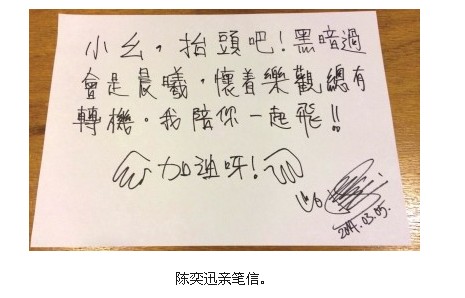 小幺，抬頭吧！黑暗過
會是晨曦，懷着樂觀總有
轉機。我陪你一起飛!!
加油呀！
2014.03.05.
陈奕迅亲笔信。